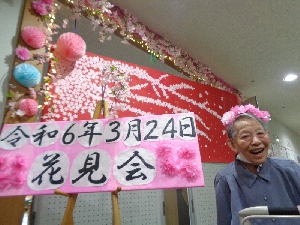 令和6年3月24日
花見会